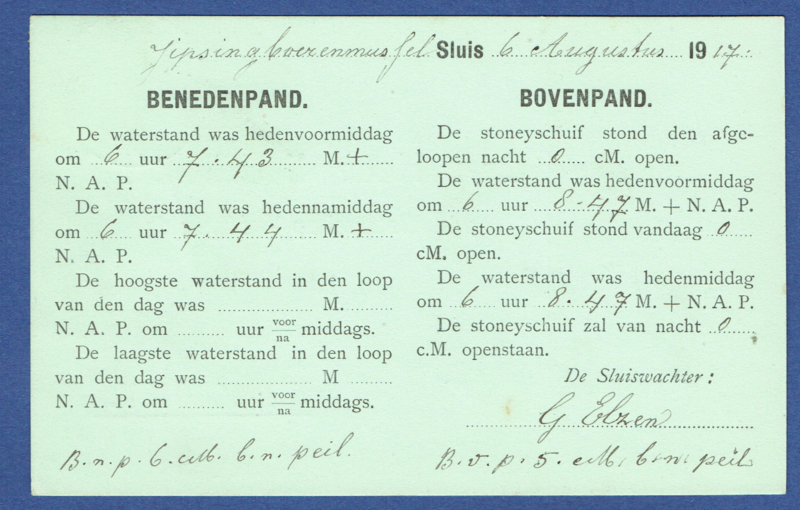 Jipsingboerenmussel Sluis 6 Augustus 1917.
BENEDENPAND.
De waterstand was hedenvoormiddag
om 6 uur 7.43 M.+
N. A. P.
De waterstand was hedennamiddag
om 6 uur 7.44 M.+
N. A. P.
De hoogste waterstand in den loop
van den dag was M.
N. A. P. om uur voor/na middags.
De laagste waterstand in den loop
van den dag was M
N. A. P. om uur voor/na middags.
B. n. p. 6. cM. b. n. peil.
BOVENPAND.
De stoneyschuif stond den afge-
loopen nacht 0 cM. open.
De waterstand was hedenvoormiddag
om 6 uur 8-47 M. + N. A. P.
De stoneyschuif stond vandaag 0
cM. open.
De waterstand was hedenmiddag
om 6 uur 8.47 M. + N. A. P.
De stoneyschuif zal van nacht 0
c.M. openstaan.
De Sluiswachter:
G Elzen
B. v. p. 5. cM. b. n. peil